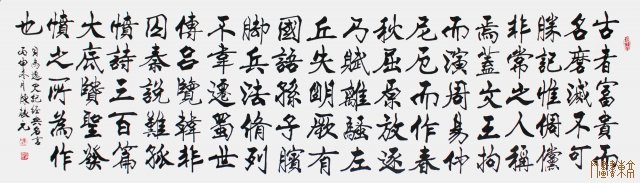 古者富貴而
名磨滅不可
勝記惟倜儻
非常之人稱
焉蓋文王拘
而演周易仲
尼厄而作春
秋屈原放逐
乃賦離騷左
丘失明厥有
國語孫子臏
脚兵法脩列
不韋遷蜀世
傳呂覽韓非
囚秦說難孤
憤詩三百篇
大底賢聖發
憤之所為作
也
司馬遷史記經典名言
丙申